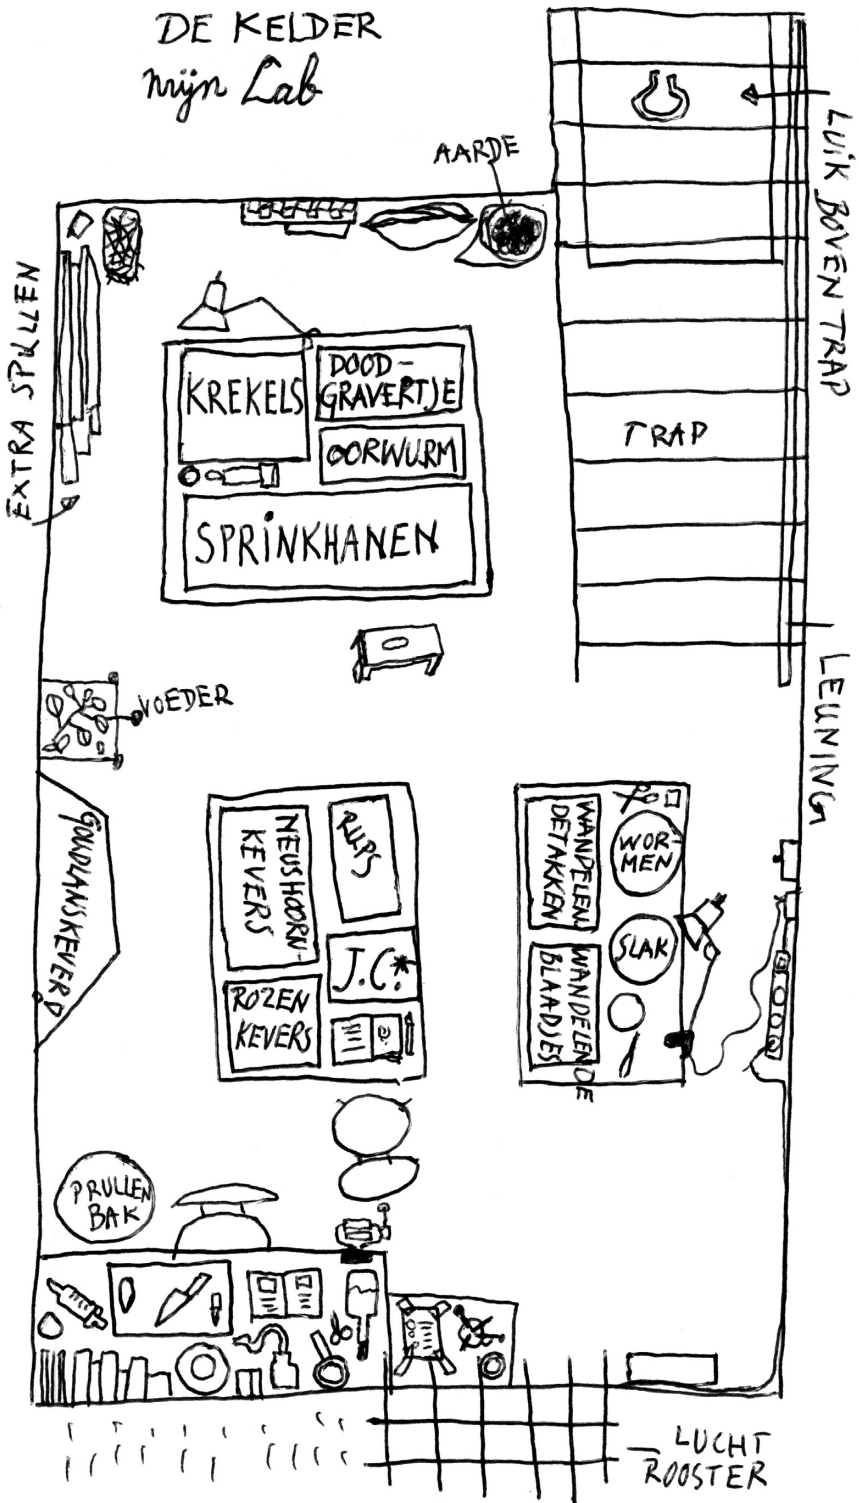 DE KELDER
mijn Lab
AARDE
LUIK BOVEN TRAP
EXTRA SPULLEN
KREKELS
DOOD-
GRAVERTJE
OORWURM
SPRINKHANEN
TRAP
LEUNING
VOEDER
GOUDLANSKEVERS
NEUSHOORN-
KEVERS
RUPS
J.C.*
ROZEN
KEVERS
WANDELEN
DETAKKEN
WOR-
MEN
SLAK
WANDELENDE
BLAADJES
PRULLEN
BAK
LUCHT
ROOSTER